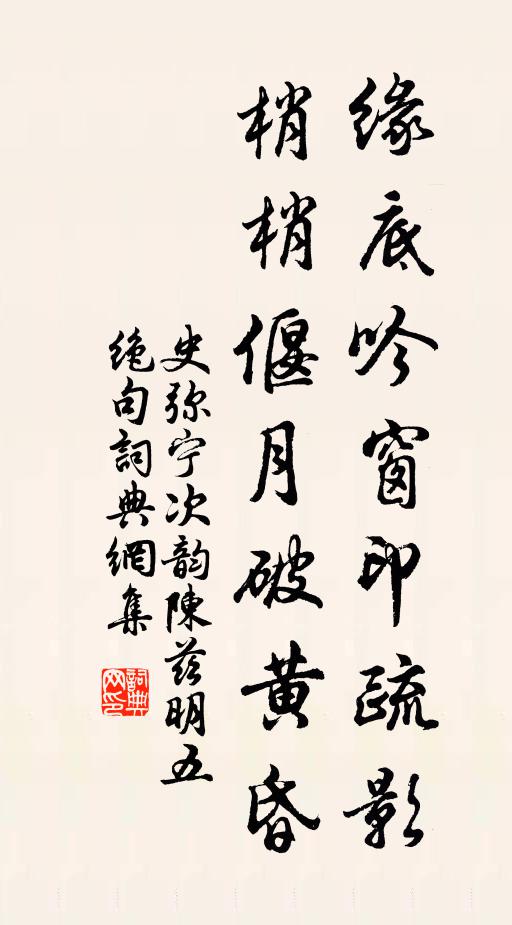 缘底吟窗印疏影
梢梢偃月破黄昏
史弥宁次韵陳兹明五
绝句詞典網集
詞典网印